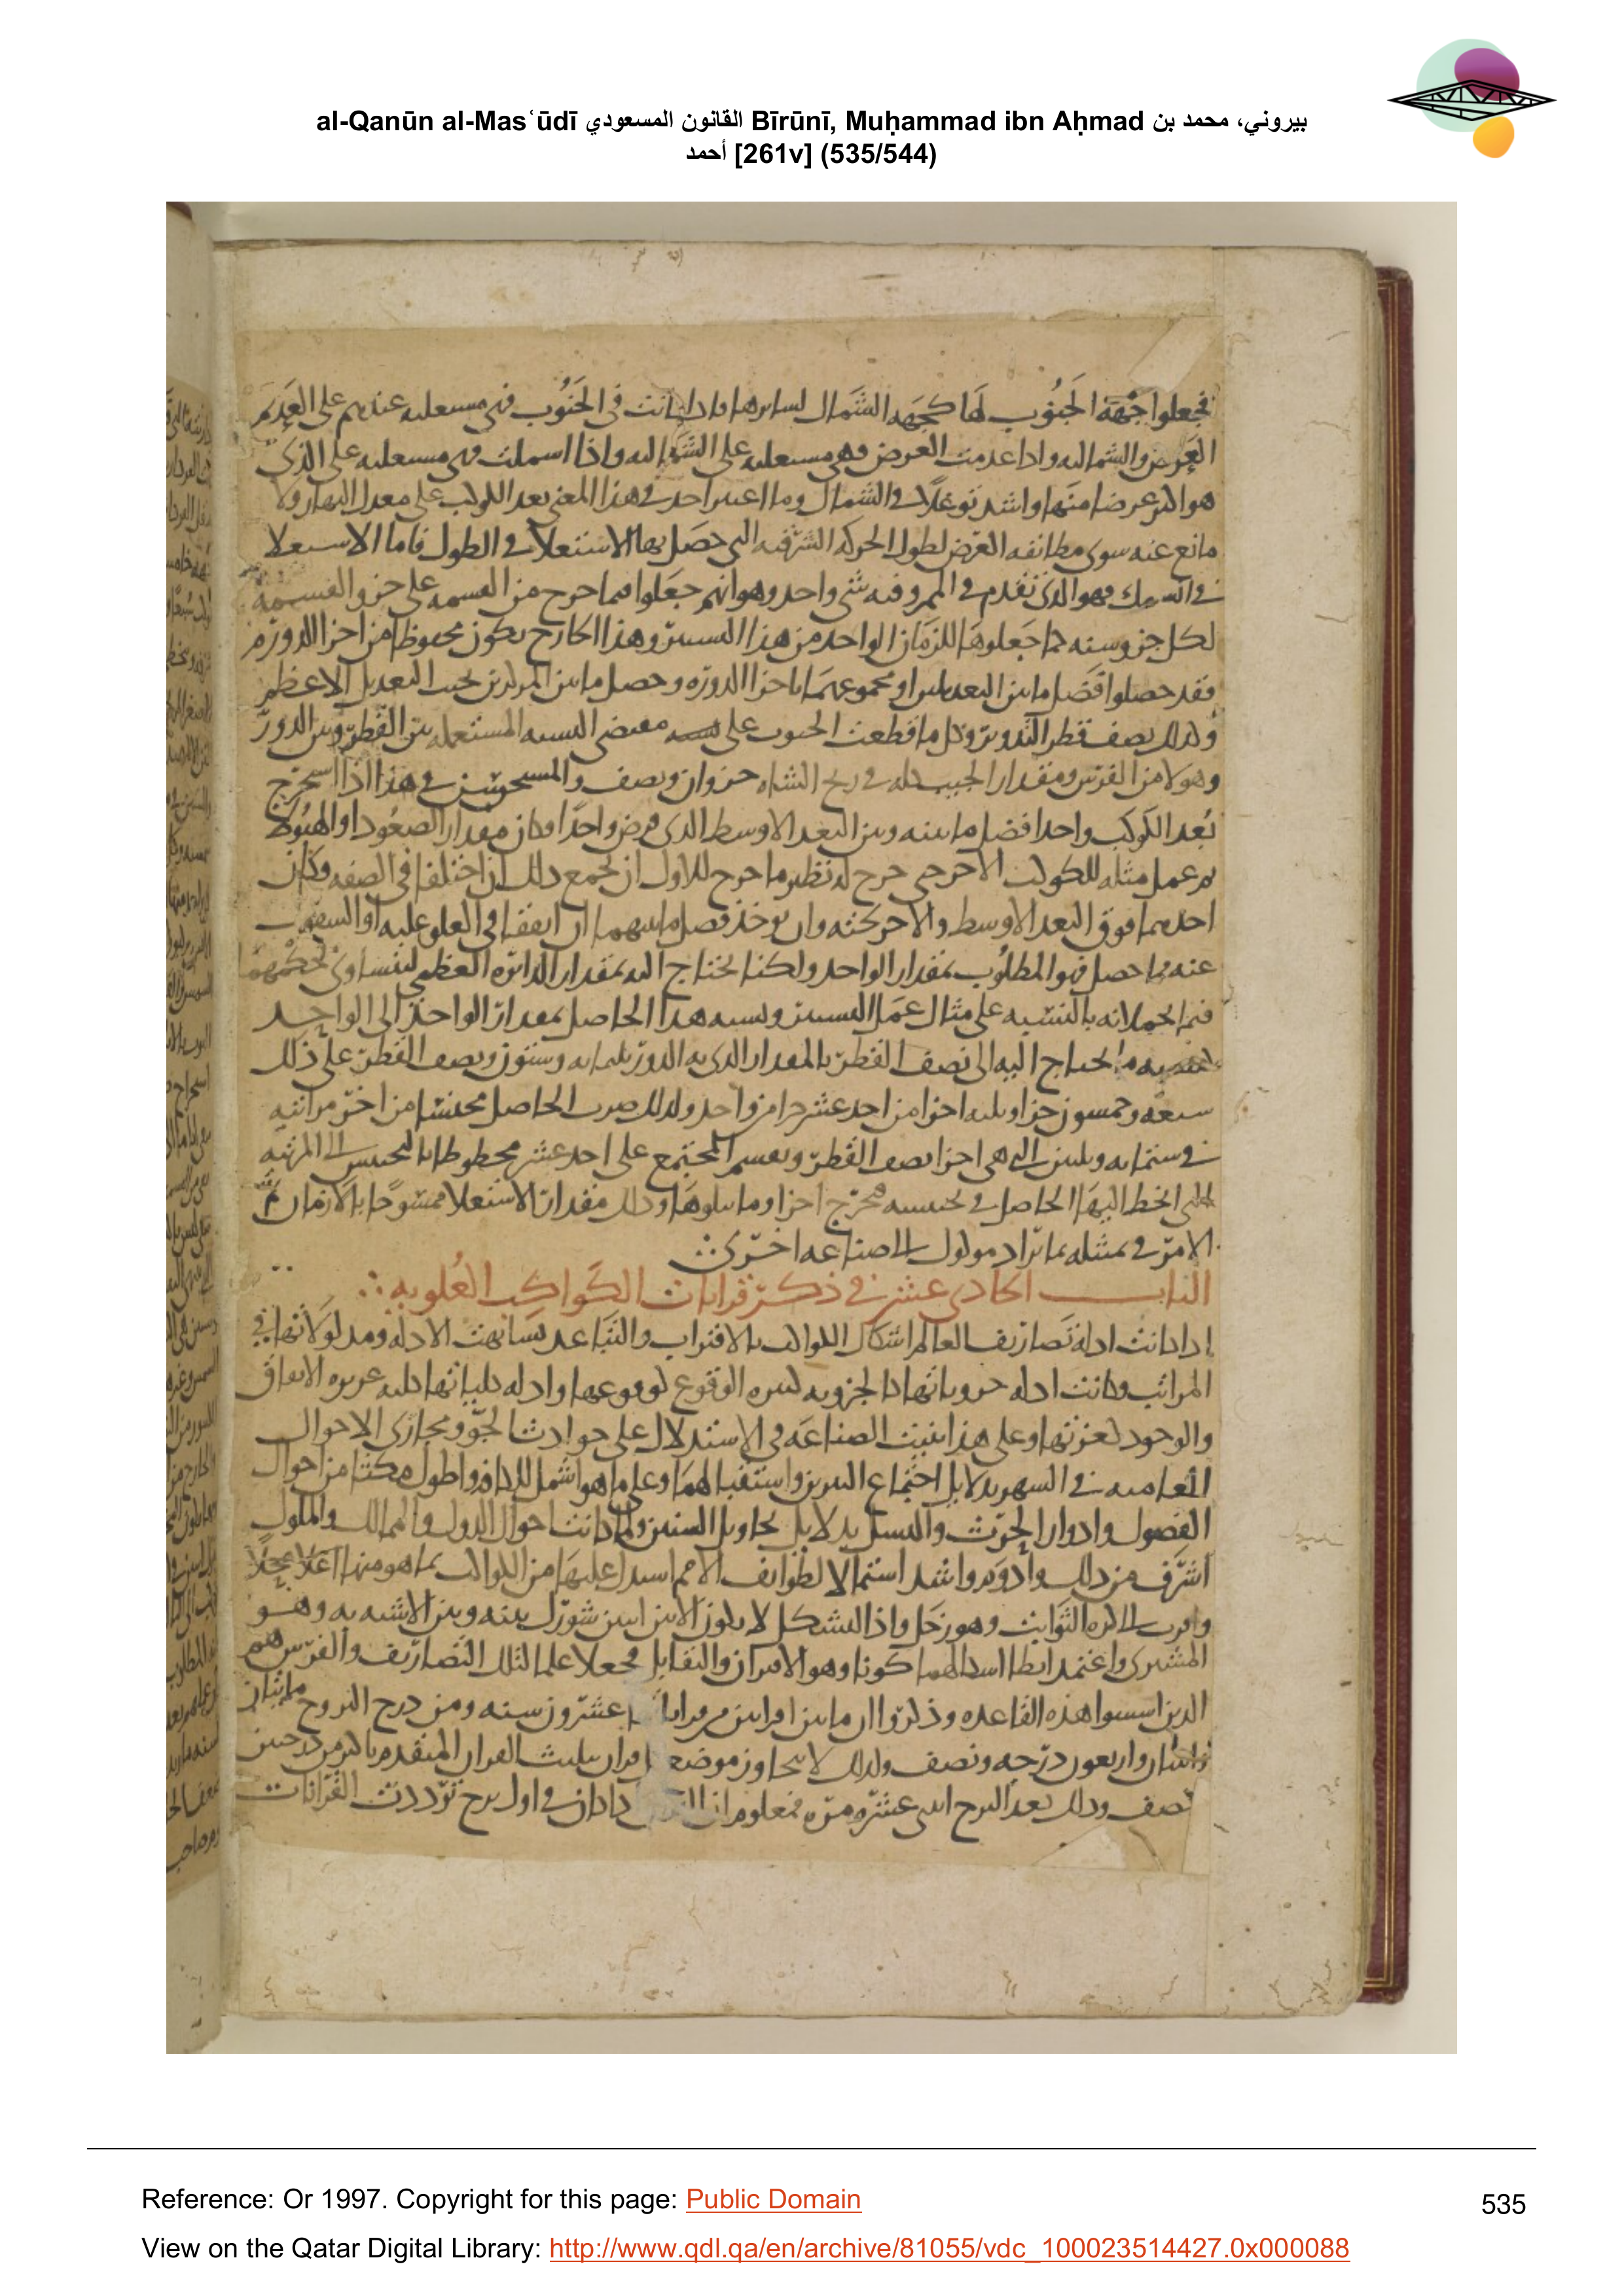 al-Qanūn al-Masʿūdī القانون المسعودي Bīrūnī, Muḥammad ibn Aḥmad بيروني، محمد بن
أحمد [261v] (535/544)
فجعلوا جهة الجنوب لها كجهه الشمال لسايرها فاذا كانت في الجنوب فهي مستعليه عندهم على العديم
العرض والشماليه واذا عدمت العرض فهي مستعليه على الشماليه واذا اسملت فهي مستعليه على الذي
هو اكثر عرضا منها واشد توغلا في الشمال وما اعتبر احد في هذا المعنى بعد الكوكب على معدل النهار ولا
مانع عنه سوى مطابقه العرض لطول الحركه الشرقيه التي حصل بها الاستعلا في الطول فاما الاستعلا
في السمك فهو الذي تقدم في الممر وفيه شي واحد وهو انهم جعلوا مما خرج من القسمه على جزو القسمه
لكل جزو سنه كما جعلوها للزمان الواحد من هذا التسيير وهذا الخارج يكون محفوظا من اجزا الدور ثم
فقد حصلوا فضل ما بين التعديلين او مجموعهما باجزا الدوره وحصل ما بين المركزين بحيب التعديل الاعظم
وكذلك نصف قطر التدوير وكل ما قطعت الجيوب على مقتضى النسبه المستعمله بين القطر وبين الدور
وهو لا من الفرس ومقدار الجيب كله في زيج الشاه جزوان ونصف في هذا اذا استخرج
بعد الكوكب واحدا فضل ما بينه وبين البعد الاوسط الذي فرض واحدا وكان مقدار الصعود او الهبوط
ثم عمل مثله للكوكب الاخر حتى خرج له نظير ما خرج للاول ان يجمع ذلك ان اختلفا في الصفه وكان
احدهما فوق البعد الاوسط والاخر تحته وان يوخذ فضل ما بينهما ان اتفقا في العلو عليه او التسفل
عنه فما حصل فهو المطلوب بمقدار الواحد ولكنا نحتاج اليه بمقدار الدائره العظمى ليتساوى تحكمهما
على مثال عمل التسيير ونسبه هذا الحاصل بمقدار الواحد الى الواحد
كنسبه ما نحتاج اليه الى نصف القطر بالمقدار الذي به الدور ثلثمايه وستون ونصف القطر على ذلك
سبعه وخمسون جزا وثلثه اجزا من احد عشر جزا من واحد ولذلك ضرب الحاصل مجنسا من اخر مراتبه
في ستمايه وثلثين التي هي اجزا نصف القطر ونقسم المجتمع على احد عشر محطوطا بالتجنيس الى المرتبه
التي انحط اليها الحاصل في تجنيسه فتخرج اجزا وما يتلوها وذلك مقدار الاستعلا ممسوحا بالازمان
الامر في مثله مما يراد موكول الى صناعه اخرى
الباب الحادي عشر في ذكر قرانات الكواكب العلويه
اذا كانت ادلة تصاريف العالم اشكال الكواكب بالاقتراب والتباعد تشابهت الادله ومدلولاتها في
المراتب وكانت ادله جزوياتها كالجزويه كثيره الوقوع لوقوعها وادله كلياتها كليه عزيزه الاتفاق
والوجود لعزتها وعلى هذا بنيت الصناعه في الاستدلال على حوادث الجو ومجاري الاحوال
العاميه في الشهر بدلايل اجتماع النيرين واستقبالهما وعلى ما هو اشمل للكافه واطول مكثا من احوال
الفصول وادوار الحرث والنسل بدلايل تحاويل السنين ولما كانت احوال الدول والممالك والملوك
اشرف من ذلك وادوم واشد اشتمالا لطوايف الامم استدل عليها من الكواكب بما هو منها اعلا محلا
واقرب الى كره الثوابت وهو زحل واذا التشكل لا يكون الا بين اثنين شورك بينه وبين الاشبه به وهو
المشتري واعتمد ابطا اشكالهما كونا وهو الاقتران والتقابل فجعلا علما لتلك التصاريف والفرس هم
الذين اسسوا هذه القاعده وذكروا ان ما بين اقترانين عشرون سنه ومن درج البروج مايتان
واثنان واربعون درجه ونصف ولذلك لا يتجاوز موضع اقران تثليث القران المتقدم باكثر من درجتين
نصف وذلك بعد البرج اثنتي عشره مره فمعلوم ان اذا كان في اول برج ترددت القرانات
Reference: Or 1997. Copyright for this page: Public Domain
535
View on the Qatar Digital Library: http://www.qdl.qa/en/archive/81055/vdc_100023514427.0x000088